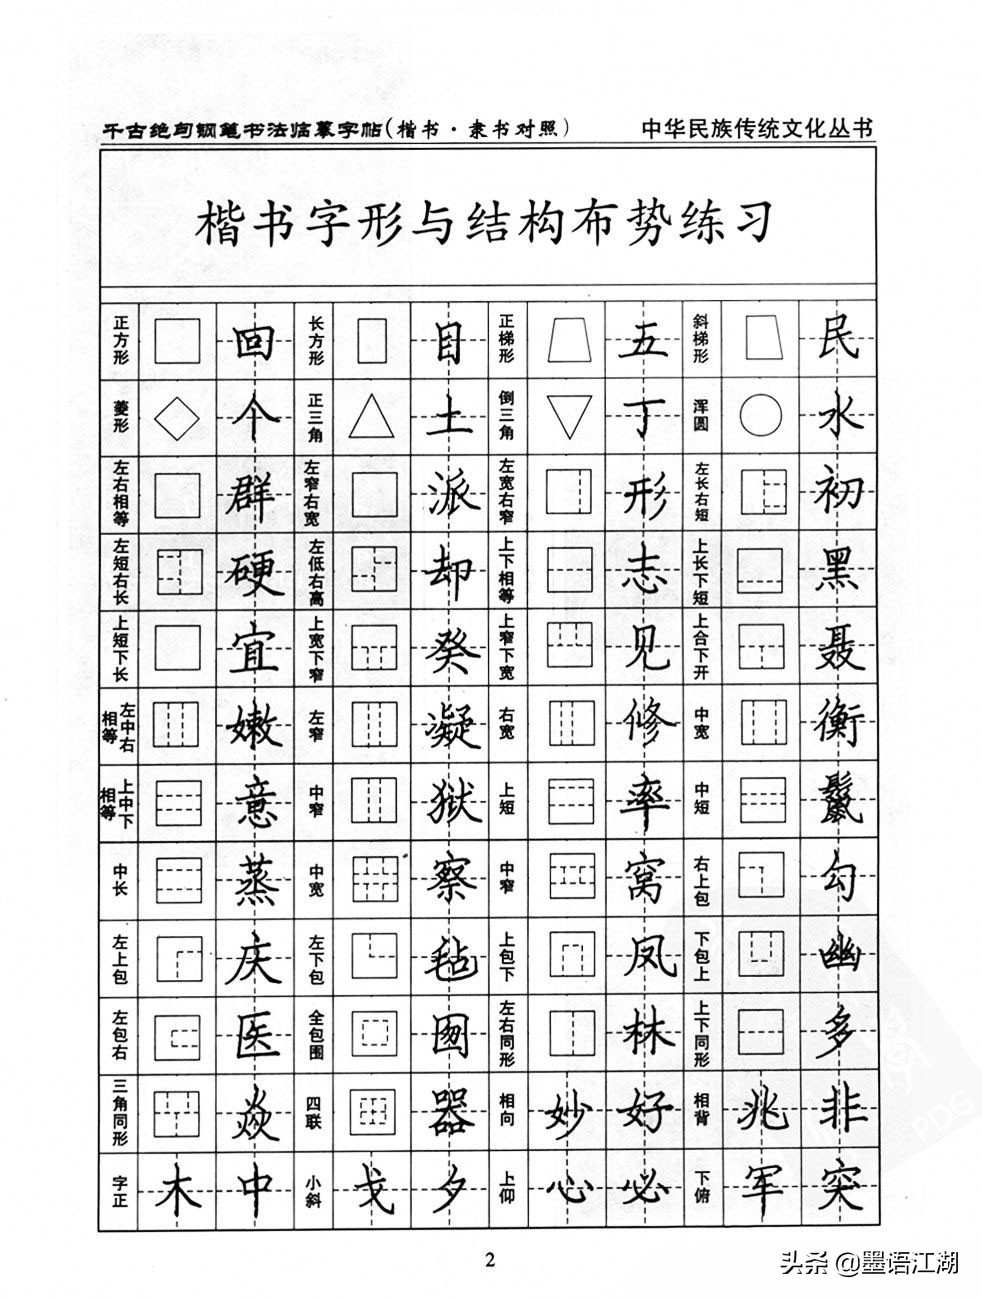 千古绝句钢笔书法临摹字帖(楷书·隶书对照) 中华民族传统文化丛书
楷书字形与结构布势练习
正方形 回 长方形 目 正梯形 五 斜梯形 民
菱形 个 正三角 土 倒三角 丁 浑圆 水
左右相等 群 左窄右宽 派 左宽右窄 形 左长右短 初
左短右长 硬 左低右高 却 上下相等 志 上长下短 黑
上短下长 宜 上宽下窄 癸 上窄下宽 见 上合下开 聂
左中右相等 嫩 左窄 凝 右宽 修 中宽 衡
上中下相等 意 中窄 狱 上短 率 中短
中长 蒸 中宽 察 中窄 窝 右上包 勾
左上包 庆 左下包 毡 上包下 凤 下包上 幽
左包右 医 全包围 囫 左右同形 林 上下同形 多
三角同形 焱 四联 器 相向 妙 好 相背 兆 非
字正 木 中 小斜 戈 夕 上仰 心 必 下俯 军 突
2
头条 @墨语江湖